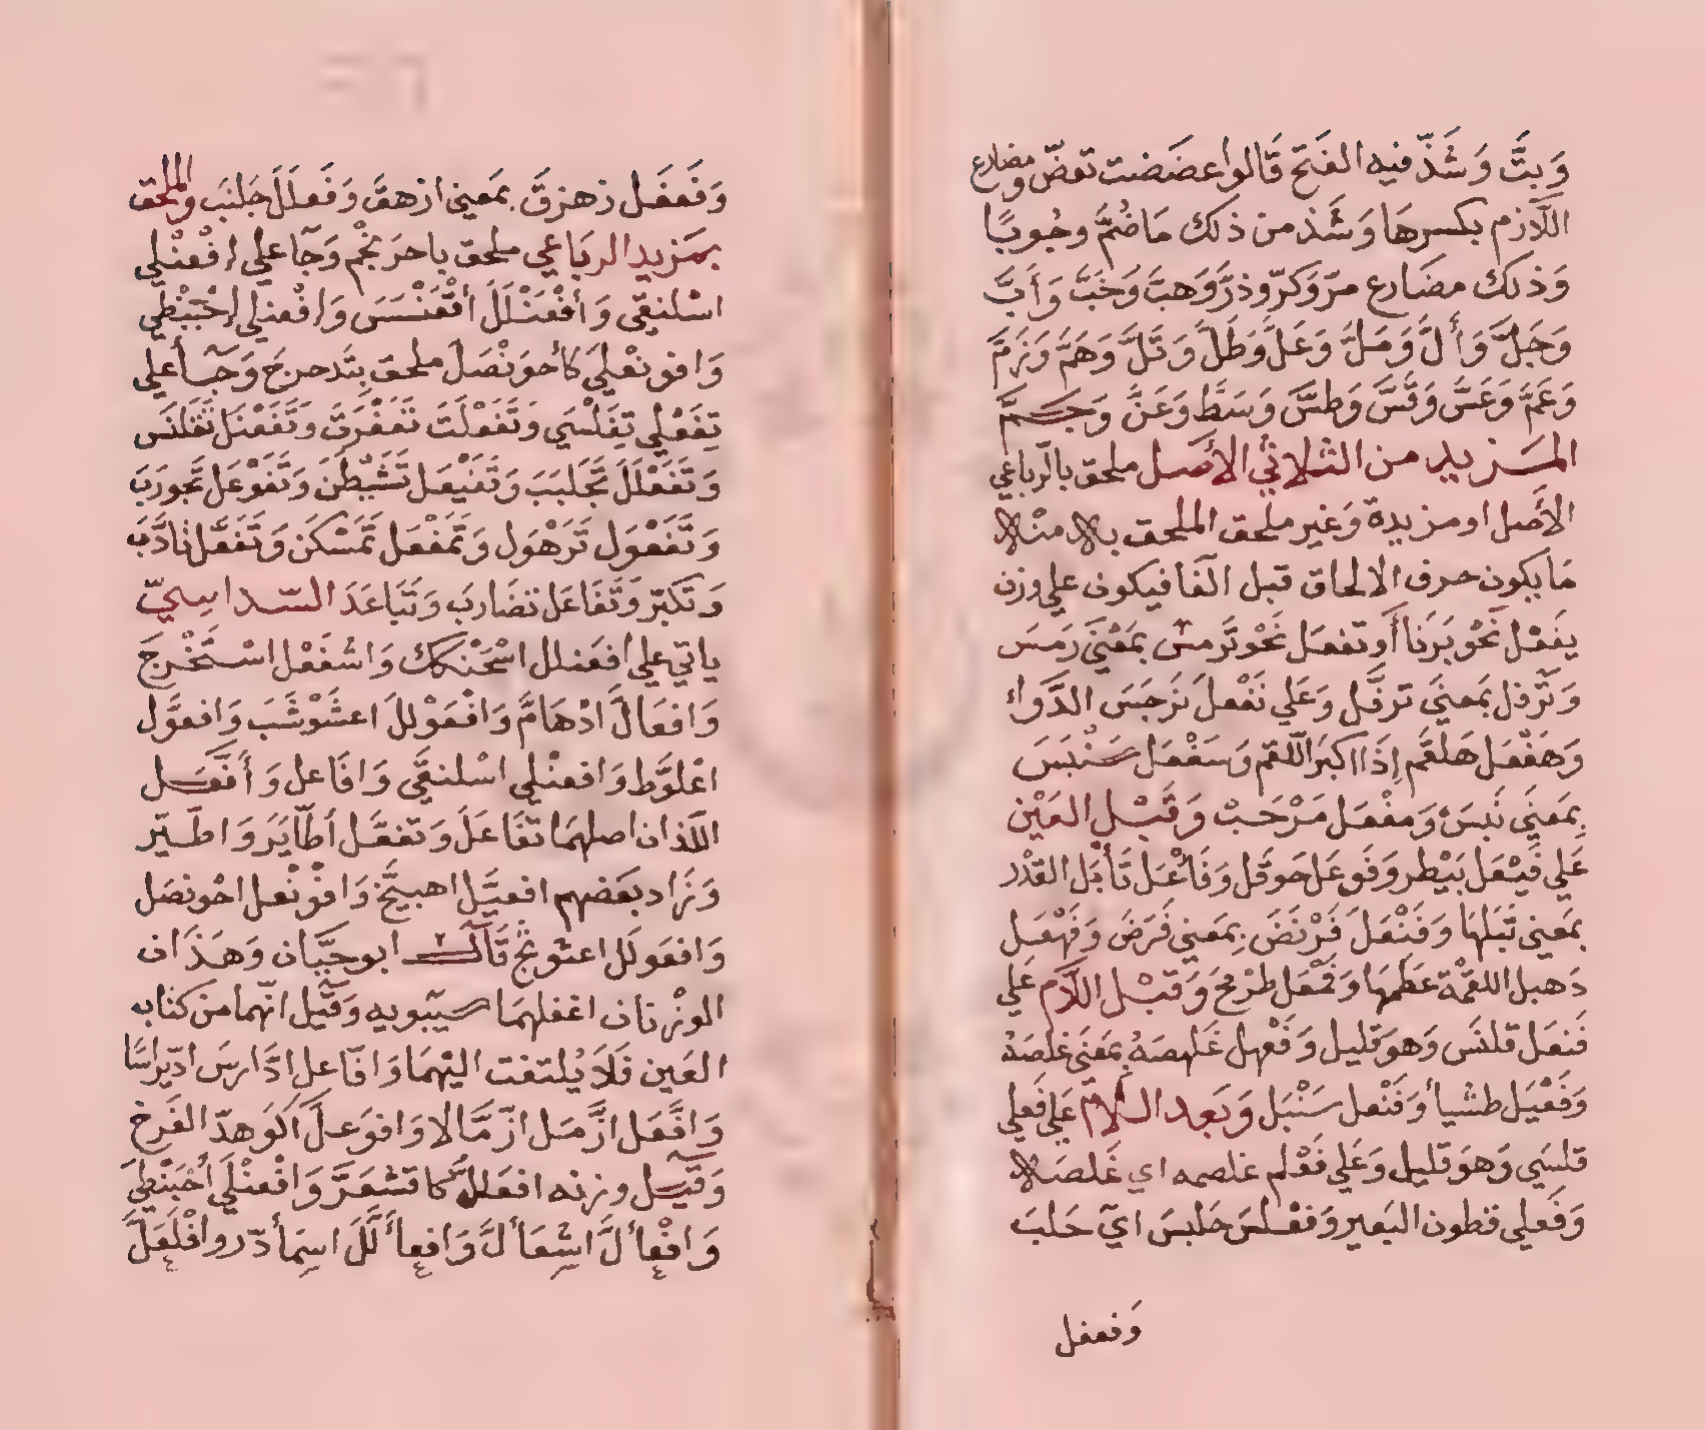 وَبتَّ وَشَذّ فيه الفَتح قَالوا عضَضت تعضّ ومضارع
اللّازم بكسرهَا وَشَذ من ذلك مَا ضُمَّ وجُوبًا
وَذلك مضَارع مرّ وَكرّ وذرَّ وَهبَّ وَخَبَّ وَأَبَّ
وَجَلَّ وَأَلَّ وَمَلَّ وَعَلَّ وَطَلَّ وَتَلَّ وَهَمَّ وَزَمَّ
وَعَمَّ وَعَسَّ وَقَسَّ وَطسَّ وَسَطَّ وَعَنَّ وَجَمَّ
المَزيد من الثلاثي الأصل ملحق بالرّباعي
الأصل او مزيدة وَغير ملحق الملحق بالامنلا
مَا يكون حرف الالحاق قبل الفا فيكون علي وزن
يفَعْل نَحْو يَرَنأَ أَو تفعَل نَحْو تَرمسَ بمَعْنَي رَمَسَ
وَنَرفل بمَعنَي ترفَّل وَعَلي نَفْعلَ نَرجَسَ الدَّواء
وَهَفْعَل هَلقَم إِذَا اكبَر اللّقم وَسَفْعَل سَنْبَسَ
بِمَعنَي نَبَسَ وَمفْعَل مَرْحَبْ وَقَبْل العَيْن
عَلي فَيْعَل بَيْطر وَفَوعَل حَوقَل وَفَأعَل تَأبَل القدْر
بمَعني تَبَلهَا وَفَنْعَلَ فَرْنَضَ بمَعني فَرَضَ وَفَهْعَل
دَهبل اللقمة عَظمهَا وَفَمْعَل طرْمَح وَقبْل اللّام عَلي
فَنعَل قلنَس وَهوَ قليل وَفَعْهل غَلهصَهُ بمَعنَي غلصَهُ
وَفَعْيَل طشيأ وَفَنْعل سَنْبَل وَبَعد اللّام عَلي فَعلي
قلسَي وَهوَ قليل وَعَلي فَعْلم غلصمه اي غَلصَه
وَفَعلي قطون البَعير وَفعْلسَ خلبسَ ايَ خَلبَ
وَفعفل
وَفَعفَل زهزقَ بمَعني ازهقَ وَفَعلَلَ جَلبَبَ وَالملحق
بمَزيد الربَاعي ملحق باحرَنجْم وَجَآ علي إفْعنْلي
اسْلنقَي وَأفْعَنْلَلَ أقْعَنْسَسَ وَإفْعنلي إحْبَنْطَي
وَافونعْلَي كأحوَنْصَلَ ملحق بتَدحرجَ وَجَآ أعلي
تِفَعْلي تقَلْسَي وَتَفَعْلَتَ تَعَفْرَتَ وَتَفَعْنَل تَقَلنَسَ
وَتَفَعْلَلَ تَجَلبَبَ وَتَفَيْعَل تَشَيْطَنَ وَتَفَوْعَل تَجَورَبَ
وَتَفَعْوَل تَرَهْوَل وَتَمَفْعَل تَمَسْكَنَ وَتَفَعّل تأدَّبَ
وَتكَبّر وَتَفَاعَل تضَاربَ وَتَبَاعَدَ السّداسيّ
ياتي علي افعَنلل اسْحَنْكك وَاسْتفَعْل اسْتَخْرجَ
وَافعَالَّ ادْهَامَّ وَافْعَوْللَ اعشَوْشَبَ وَافعوَّل
اعْلوَّط وَافعنْلي اسْلنقَي وَافّاعل وَأفّعَّل
اللّذان اصلهمَا تفَاعَلَ وَتفعَّل أطَّايَرَ وَاطّيّر
وَزَاد بعَضهم افعيَّل اهبيَّخ وَافْوْنْعل احْونصَل
وَافعَولَل اعثوثجّ قَآلَ ابو حيَّان وَهَذَان
الوزْنان اغفلهمَا سيبويه وَقَيل انّهما من كتَابه
العَين فَلَا يُلتفت اليْهمَا وَافّاعل ادَّارسَ ادّيراسًا
وَافَّعَل ازَّمّل ازّمَّالا وَافوَعلَّ اكوَهدّ الفَرخ
وَقَيَل وزنه افعَللَّ كاقشعَرَّ وَافْعنْلَي أحْبَنْطيَ
وَافْعأَلَّ اشعَأَلَّ وَافعأَلَّلَ اسمَأدّر وافْلَعَلَّ